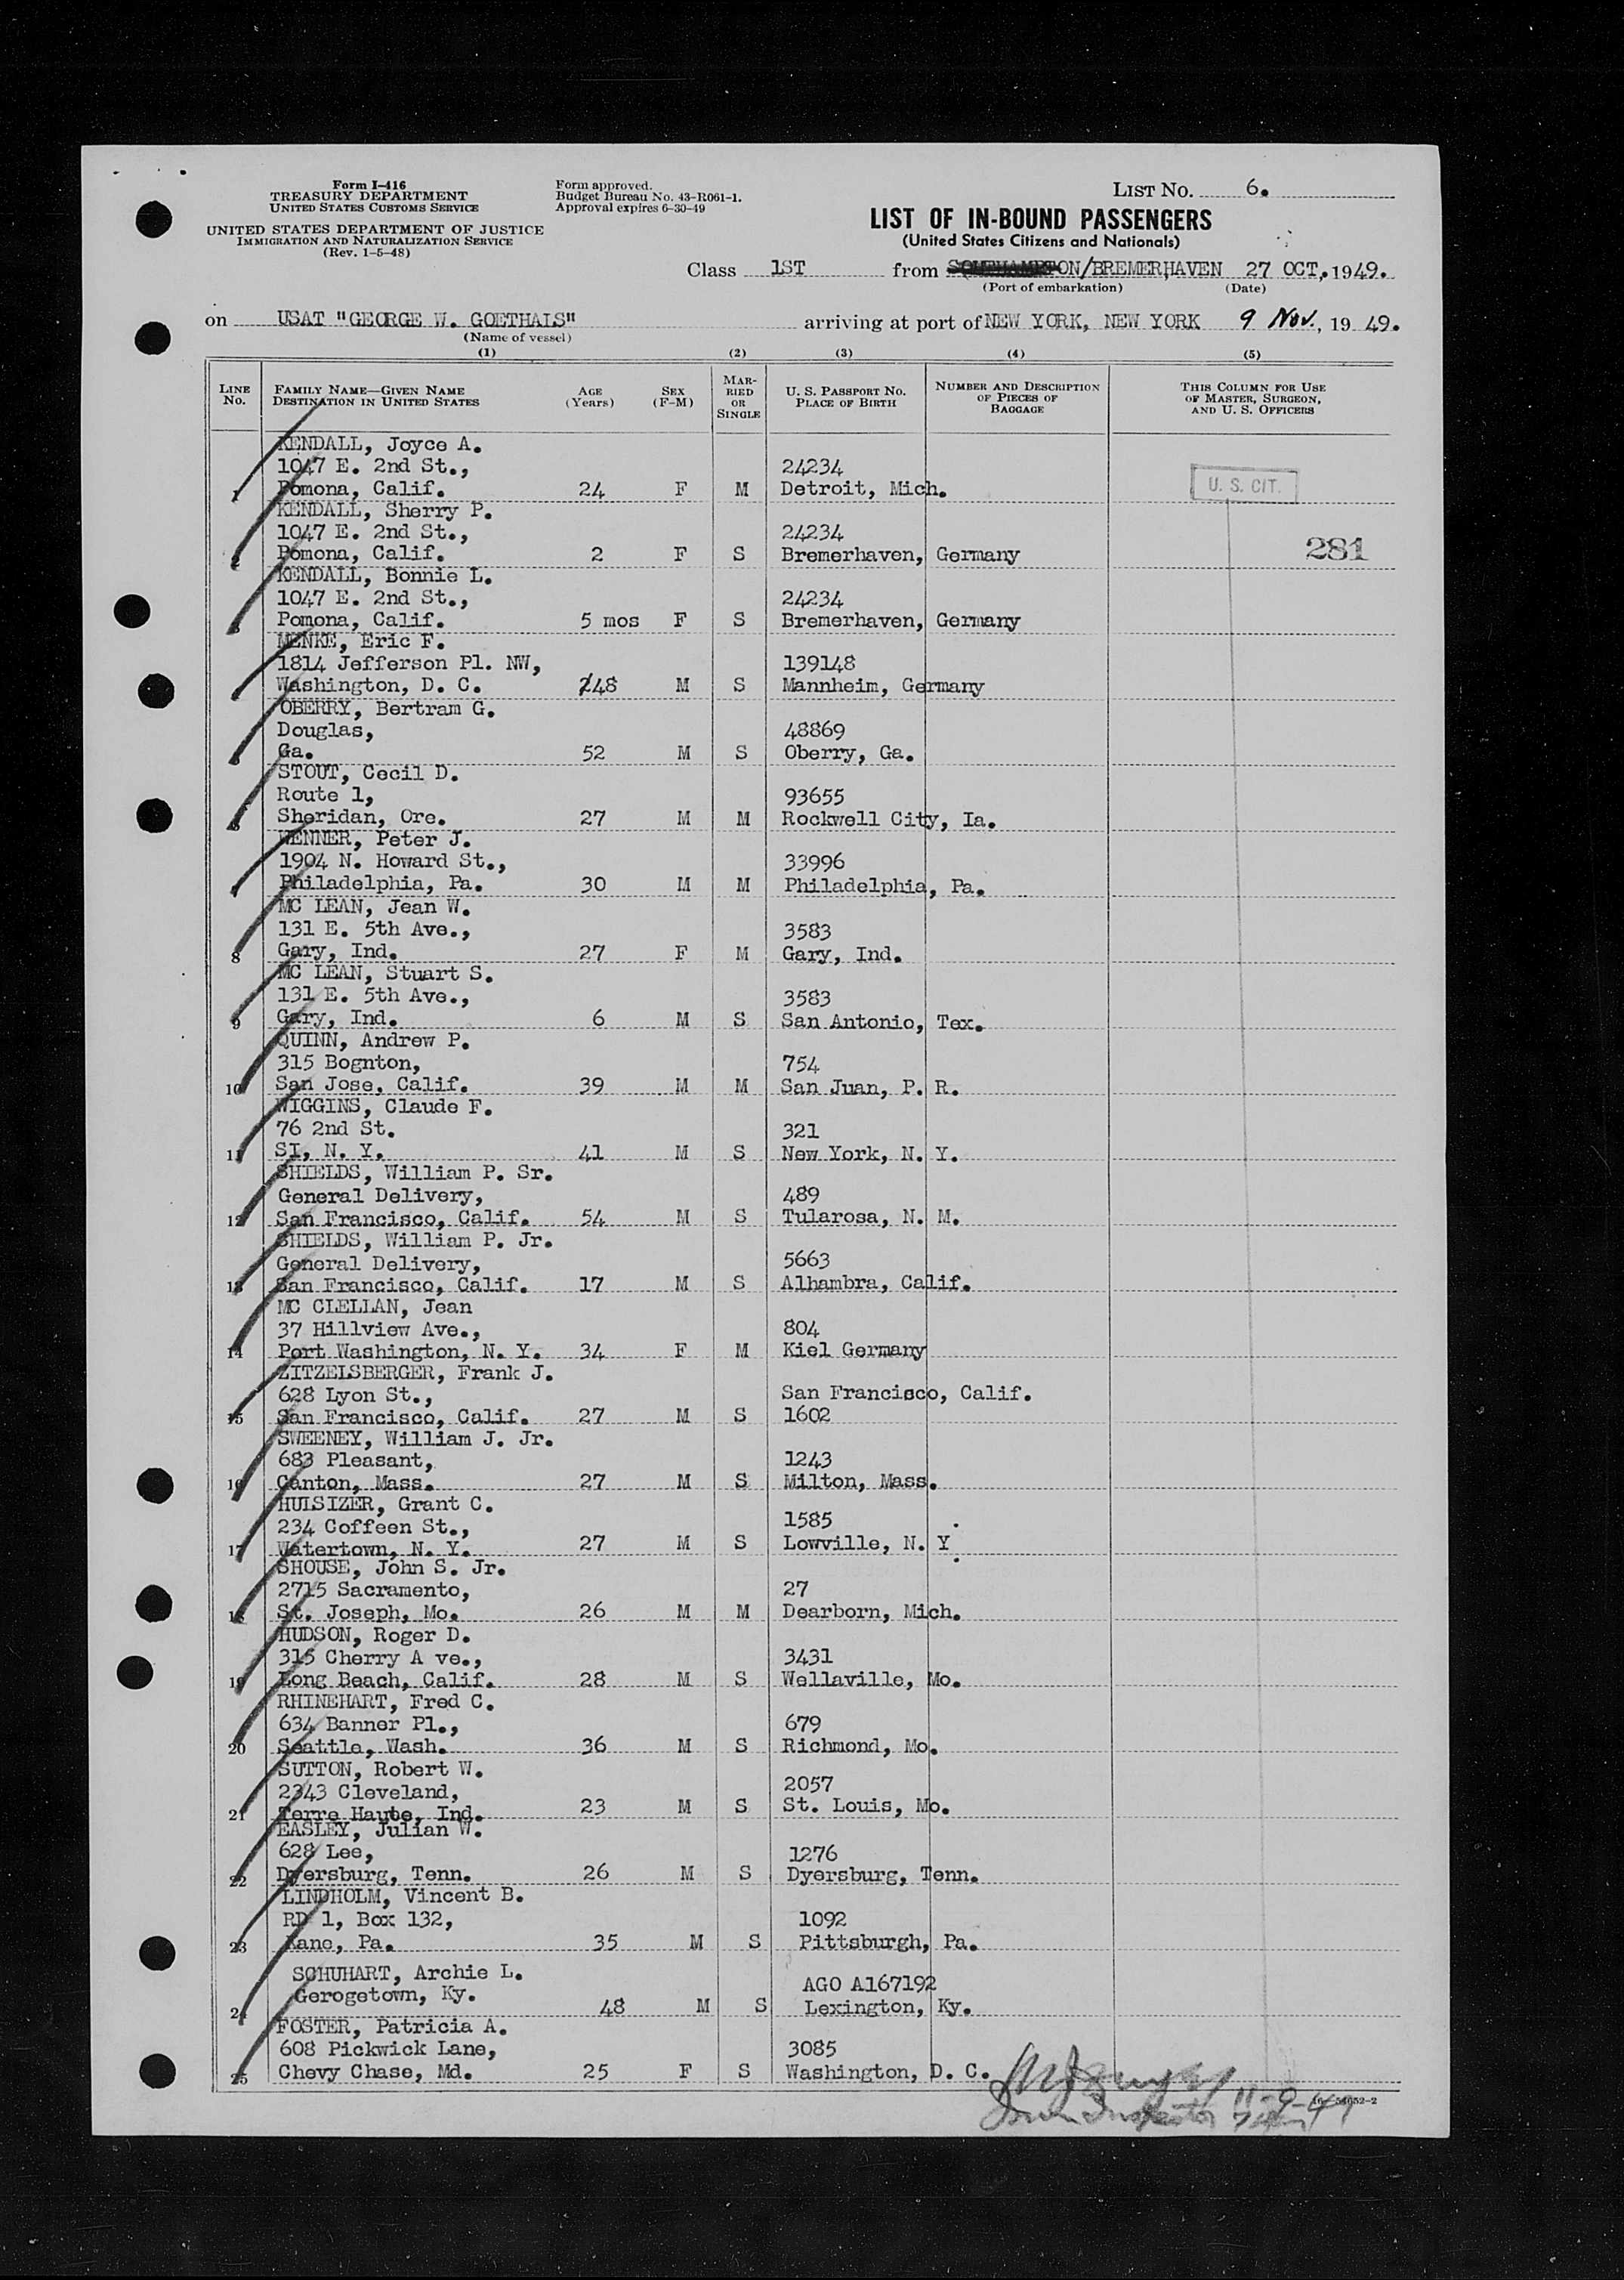 Form I-416
TREASURY DEPARTMENT
UNITED STATES CUSTOMS SERVICE
UNITED STATES DEPARTMENT OF JUSTICE
IMMIGRATION AND NATURALIZATION SERVICE
(Rev. 1-5-48)
Form approved.
Budget Bureau No. 43-R061-1.
Approval expires 6-30-49
LIST NO. 6.
LIST OF IN-BOUND PASSENGERS
(United States Citizens and Nationals)
Class 1ST from SOUTHAMPTON/BREMERHAVEN 27 OCT, 1949.
(Port of embarkation) (Date)
on USAT "GEORGE W. GOETHALS" arriving at port of NEW YORK, NEW YORK 9 Nov., 19 49.
(Name of vessel)
(1) (2) (3) (4) (5)
LINE NO. FAMILY NAME—GIVEN NAME DESTINATION IN UNITED STATES AGE (Years) SEX (F-M) MARRIED OR SINGLE U. S. PASSPORT NO. PLACE OF BIRTH NUMBER AND DESCRIPTION OF PIECES OF BAGGAGE THIS COLUMN FOR USE OF MASTER, SURGEON, AND U. S. OFFICERS
KENDALL, Joyce A.
1047 E. 2nd St., 24234
1 Pomona, Calif. 24 F M Detroit, Mich. U. S. CIT.
KENDALL, Sherry P.
1047 E. 2nd St., 24234
2 Pomona, Calif. 2 F S Bremerhaven, Germany 281
KENDALL, Bonnie L.
1047 E. 2nd St., 24234
3 Pomona, Calif. 5 mos F S Bremerhaven, Germany
MENKE, Eric F.
1814 Jefferson Pl. NW, 139148
4 Washington, D. C. 48 M S Mannheim, Germany
OBERRY, Bertram G.
Douglas, 48869
5 Ga. 52 M S Oberry, Ga.
STOUT, Cecil D.
Route 1, 93655
6 Sheridan, Ore. 27 M M Rockwell City, Ia.
WENNER, Peter J.
1904 N. Howard St., 33996
7 Philadelphia, Pa. 30 M M Philadelphia, Pa.
MC LEAN, Jean W.
131 E. 5th Ave., 3583
8 Gary, Ind. 27 F M Gary, Ind.
MC LEAN, Stuart S.
131 E. 5th Ave., 3583
9 Gary, Ind. 6 M S San Antonio, Tex.
QUINN, Andrew P.
315 Bognton, 754
10 San Jose, Calif. 39 M M San Juan, P. R.
WIGGINS, Claude F.
76 2nd St. 321
11 SI, N. Y. 41 M S New York, N. Y.
SHIELDS, William P. Sr.
General Delivery, 489
12 San Francisco, Calif. 54 M S Tularosa, N. M.
SHIELDS, William P. Jr.
General Delivery, 5663
13 San Francisco, Calif. 17 M S Alhambra, Calif.
MC CLELLAN, Jean
37 Hillview Ave., 804
14 Port Washington, N. Y. 34 F M Kiel Germany
ZITZELSBERGER, Frank J.
628 Lyon St., San Francisco, Calif.
15 San Francisco, Calif. 27 M S 1602
SWEENEY, William J. Jr.
683 Pleasant, 1243
16 Canton, Mass. 27 M S Milton, Mass.
HUISIZER, Grant C.
234 Coffeen St., 1585
17 Watertown, N. Y. 27 M S Lowville, N. Y.
SHOUSE, John S. Jr.
2715 Sacramento, 27
18 St. Joseph, Mo. 26 M M Dearborn, Mich.
HUDSON, Roger D.
315 Cherry A ve., 3431
19 Long Beach, Calif. 28 M S Wellaville, Mo.
RHINEHART, Fred C.
634 Banner Pl., 679
20 Seattle, Wash. 36 M S Richmond, Mo.
SUTTON, Robert W.
2343 Cleveland, 2057
21 Terre Haute, Ind. 23 M S St. Louis, Mo.
EASLEY, Julian W.
628 Lee, 1276
22 Dyersburg, Tenn. 26 M S Dyersburg, Tenn.
LINDHOLM, Vincent B.
RD 1, Box 132, 1092
23 Kane, Pa. 35 M S Pittsburgh, Pa.
SCHUHART, Archie L. AGO A167192
Gerogetown, Ky.
24 48 M S Lexington, Ky.
FOSTER, Patricia A.
608 Pickwick Lane, 3085
25 Chevy Chase, Md. 25 F S Washington, D. C.
Inspector 11-9-49